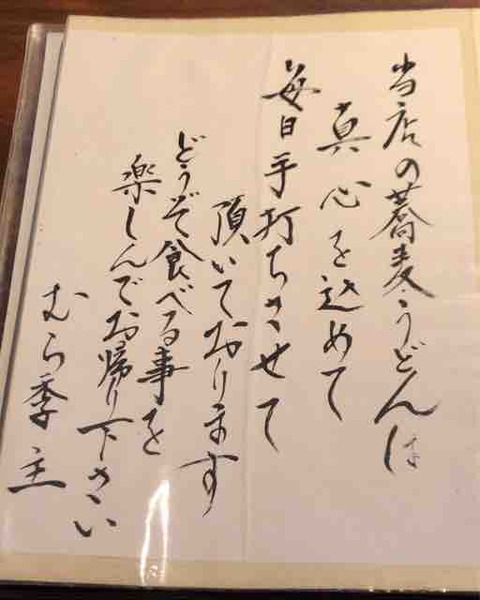 当店の蕎麦うどんは
真心を込めて
毎日手打ちさせて
頂いております
どうぞ食べる事を
楽しんでお帰り下さい
むら季主